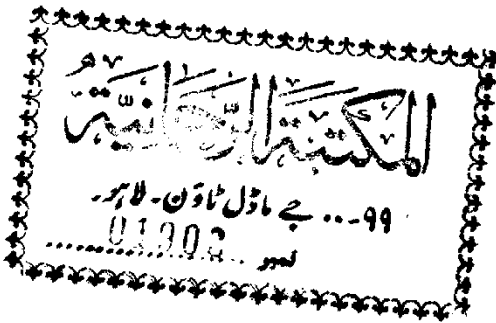 المكتبة الرحمانية
۹۹...جے ماڈل ٹاؤن۔لاہور۔
نمبر 01908